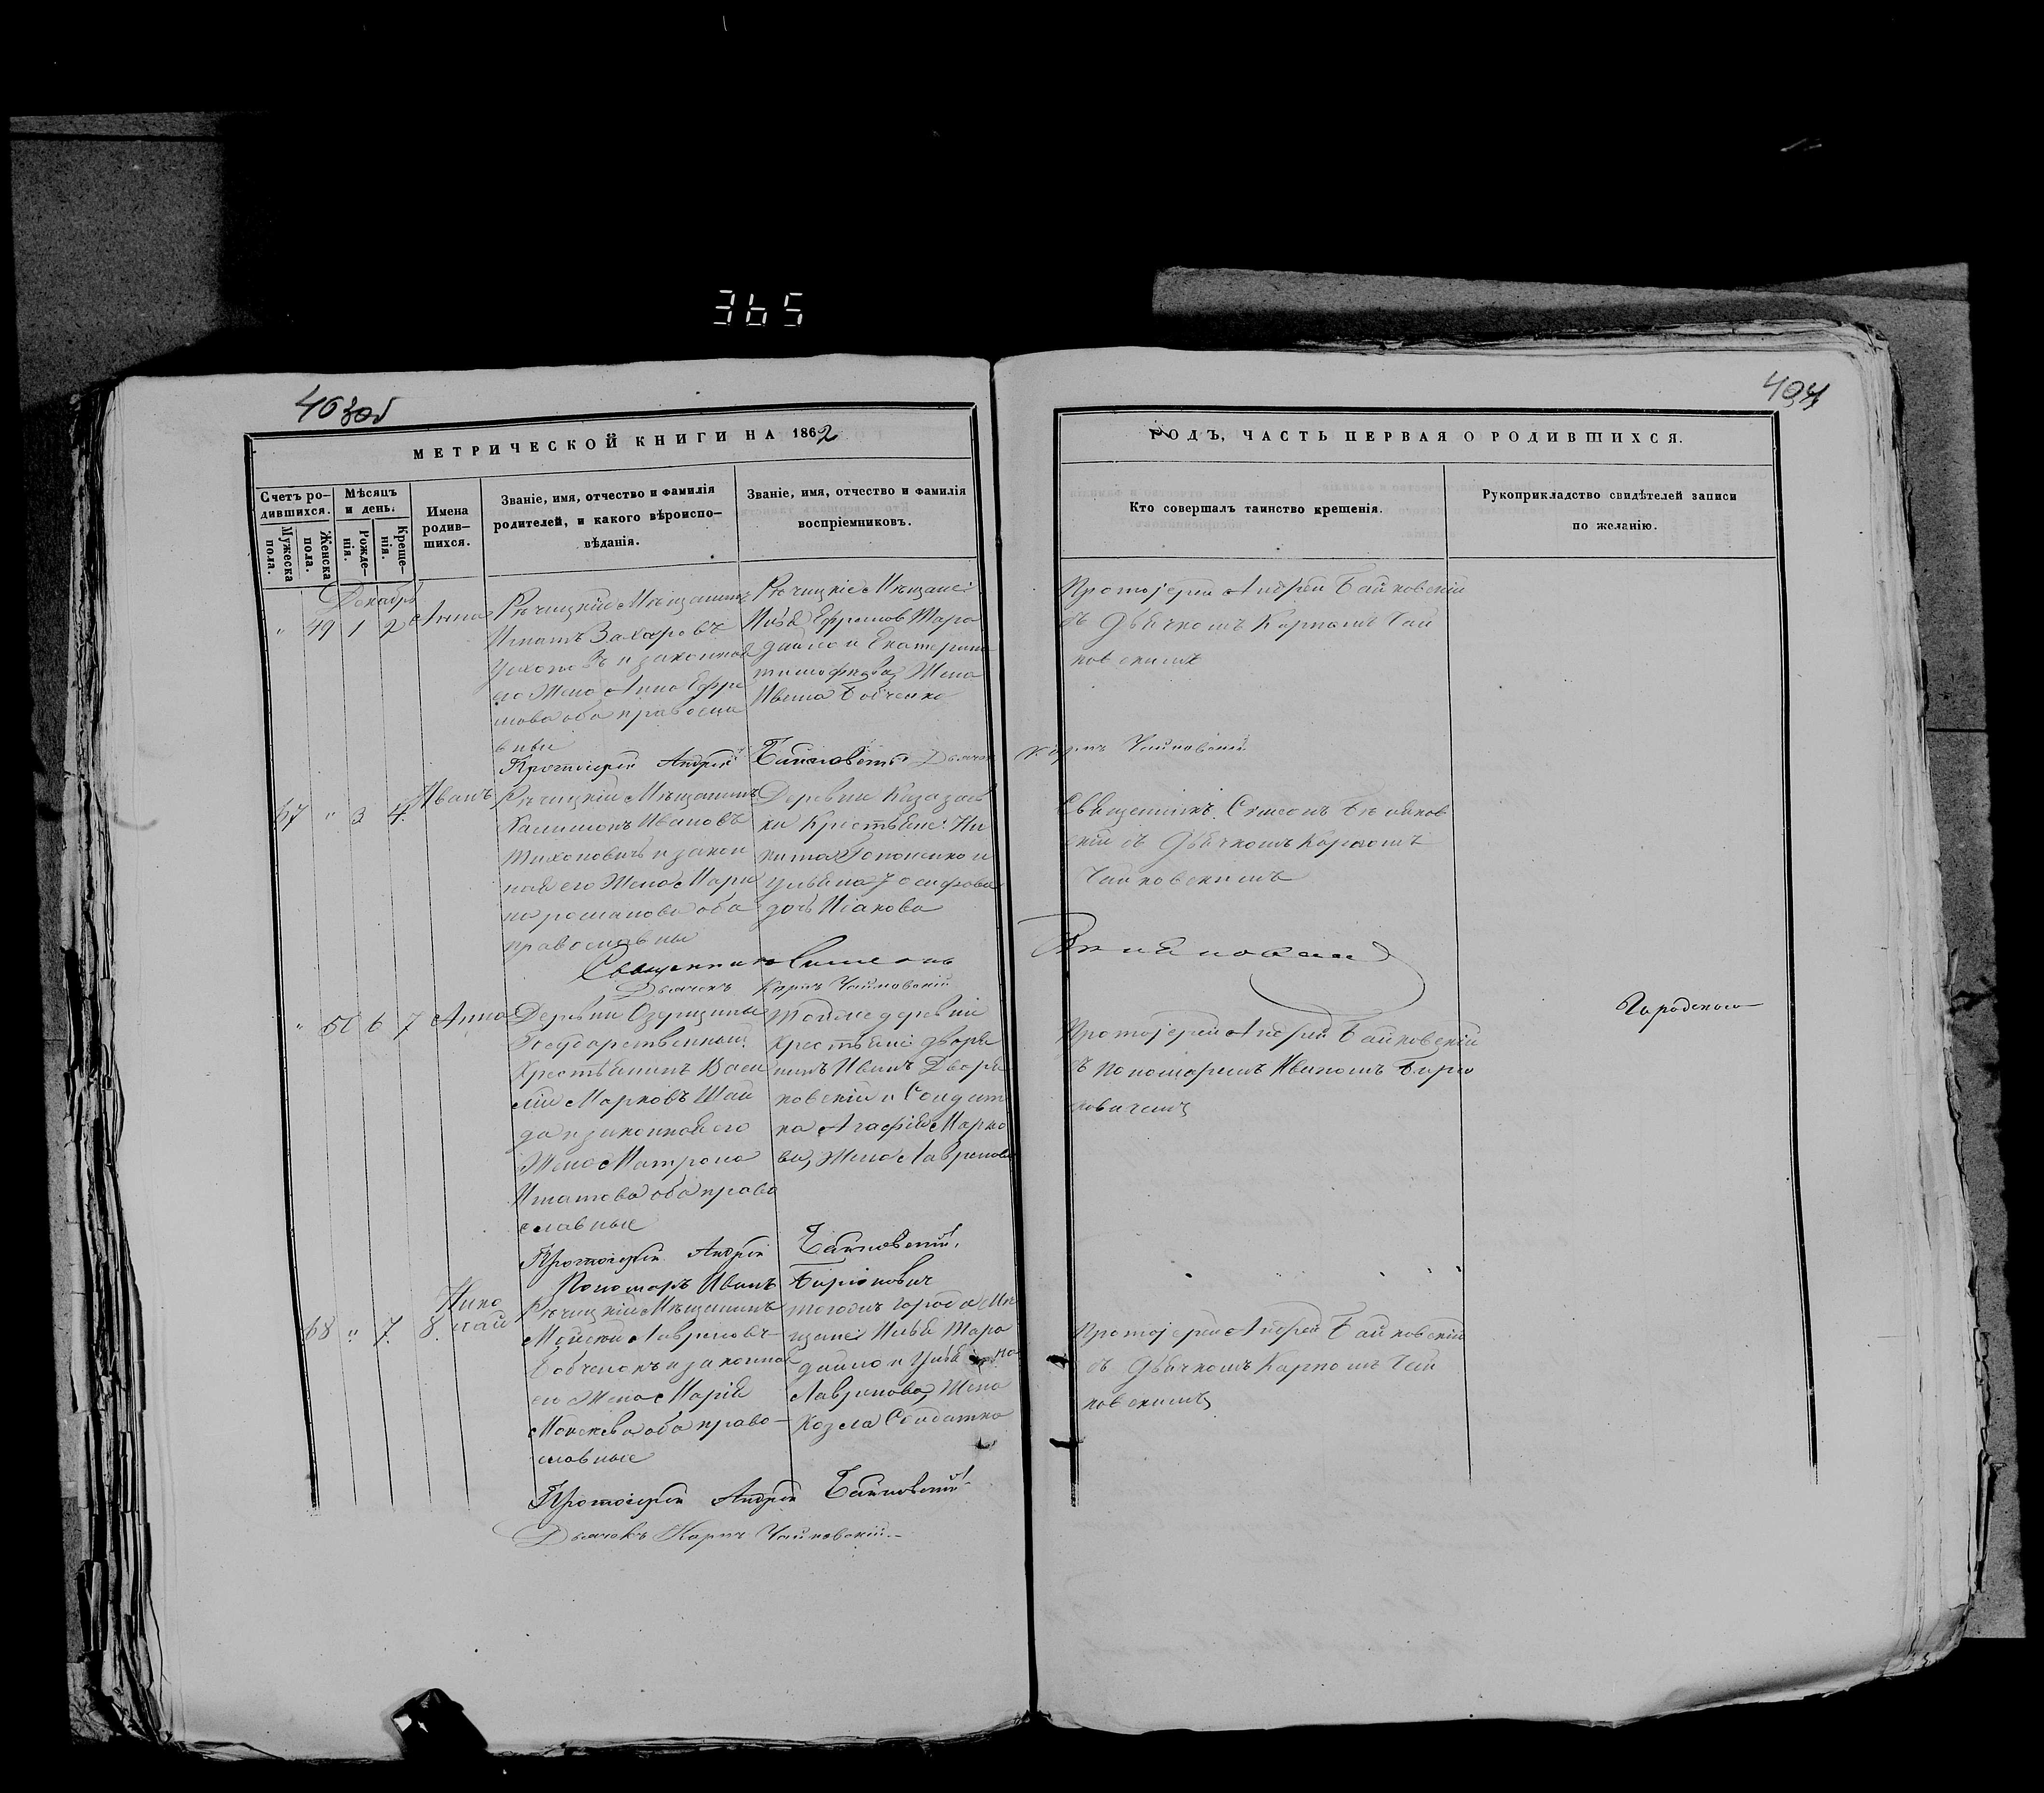 365
403об
404
МЕТРИЧЕСКОЙ КНИГИ НА 1862
ГОДЪ, ЧАСТЬ ПЕРВАЯ О РОДИВШИХСЯ.
Счетъ ро-
дившихся.
Мужеска
пола.
Женска
пола.
Мѣсяцъ
и день.
Рожде-
нія.
Креще-
нія.
Имена
родив-
шихся.
Званіе, имя, отчество и фамилія
родителей, и какого вѣроиспо-
вѣданія.
Званіе, имя, отчество и фамилія
воспріемниковъ.
Кто совершалъ таинство крещенія.
Рукоприкладство свидѣтелей записи
по желанію.
Декабрь
" 49 1 2 Анна
Рѣчицкій Мѣщанинъ
Игнатъ Захаровъ
и законная
его Жена Анна Ефре
мова оба правосла
вны
Рѣчицкіе Мѣщане:
Илья Ефремов Шара
дайло и Екатерина
тимофеева Жена
Ивана Бобченка
Протоіерей Андрей Байковскій
съ Дьячкомъ Карпомъ Чай
ковскимъ
Протоіерей Андрей Байковскій Дьячок Карпъ Чайковскій
67 " 3 4 Иванъ
Рѣчицкій Мѣщанинъ
Филимонъ Ивановъ
Тихоновичъ и закон
ная его Жена Мари
на романова оба
православны
Деревни
ки Крестьяне: Ни
кита Гапоненко и
ульяна Іосифова
дочь Исакова
Священникъ Симеонъ
скій съ Дьячкомъ Карпомъ
Чайковскимъ
Священникъ Симеонъ
Дьячокъ Карпъ Чайковскій
" 50 6 7 Анна
Деревни Озерщины
Государственный
Крестьянинъ Васи
лій Марковъ Шай
да и законная его
Жена Матрона
Игнатова оба право
славные
тойже деревни
Крестьяне: дворя
нинъ Иванъ Дворя
ковскій и Солдат
ка Агафія Марко
ва, Жена Лавренова
Протоіерей Андрей Байковскій
съ пономаремъ Иваномъ Бирю
ковичемъ
Городского
Протоіерей Андрей Байковскій.
Пономаръ Иванъ Бирюкович
68 " 7 8 Нико
лай
Рѣчицкій Мѣщанинъ
Мойсей Лавреновъ
Бобченокъ и законная
его Жена Марія
Моисеева оба право-
славные
тогожъ города Мѣ
щане: Илья Шара
дайло и Ульяна
Лавренова, Жена
Козела Солдатка
Протоіерей Андрей Байковскій
съ Дьячкомъ Карпомъ Чай
ковскимъ
Протоіерей Андрей Байковскій
Дьячокъ Карпъ Чайковскій.-